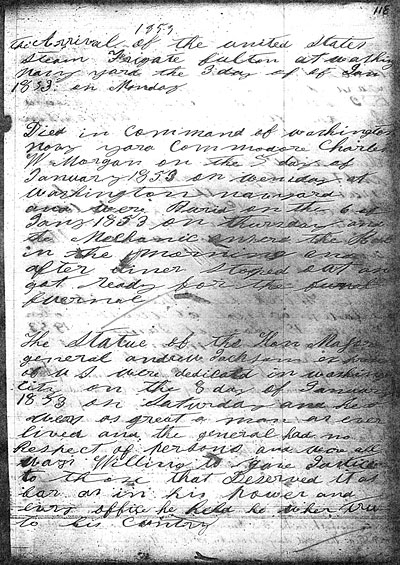 118
1853
the Arrival of the united States
Steam Frigate fulton at washing
Navy yard the 3 day of of Jan
1853 on Monday
Died in Command of washington
navy yard Commodore Charles
W Morgan on the 5 day of
January 1853 on wensday at
washington navy yard
and were Buried on the 6 of
Jany 1853 on thursday and
the Mechanic
in the morning and
after diner stoped out and
got ready for the funal
furneral
The Statue of the Hon Major
general andrew Jackson
at U S were dedicatd in washing
City on the 8 day of January
1853 on Saturday and he
were as great a man as ever
lived and the general had no
Respect of persons and were all
ways Willing to gave Justice
to those that Deserved it as
far as in his power and
evry office he held he were true
to his Country